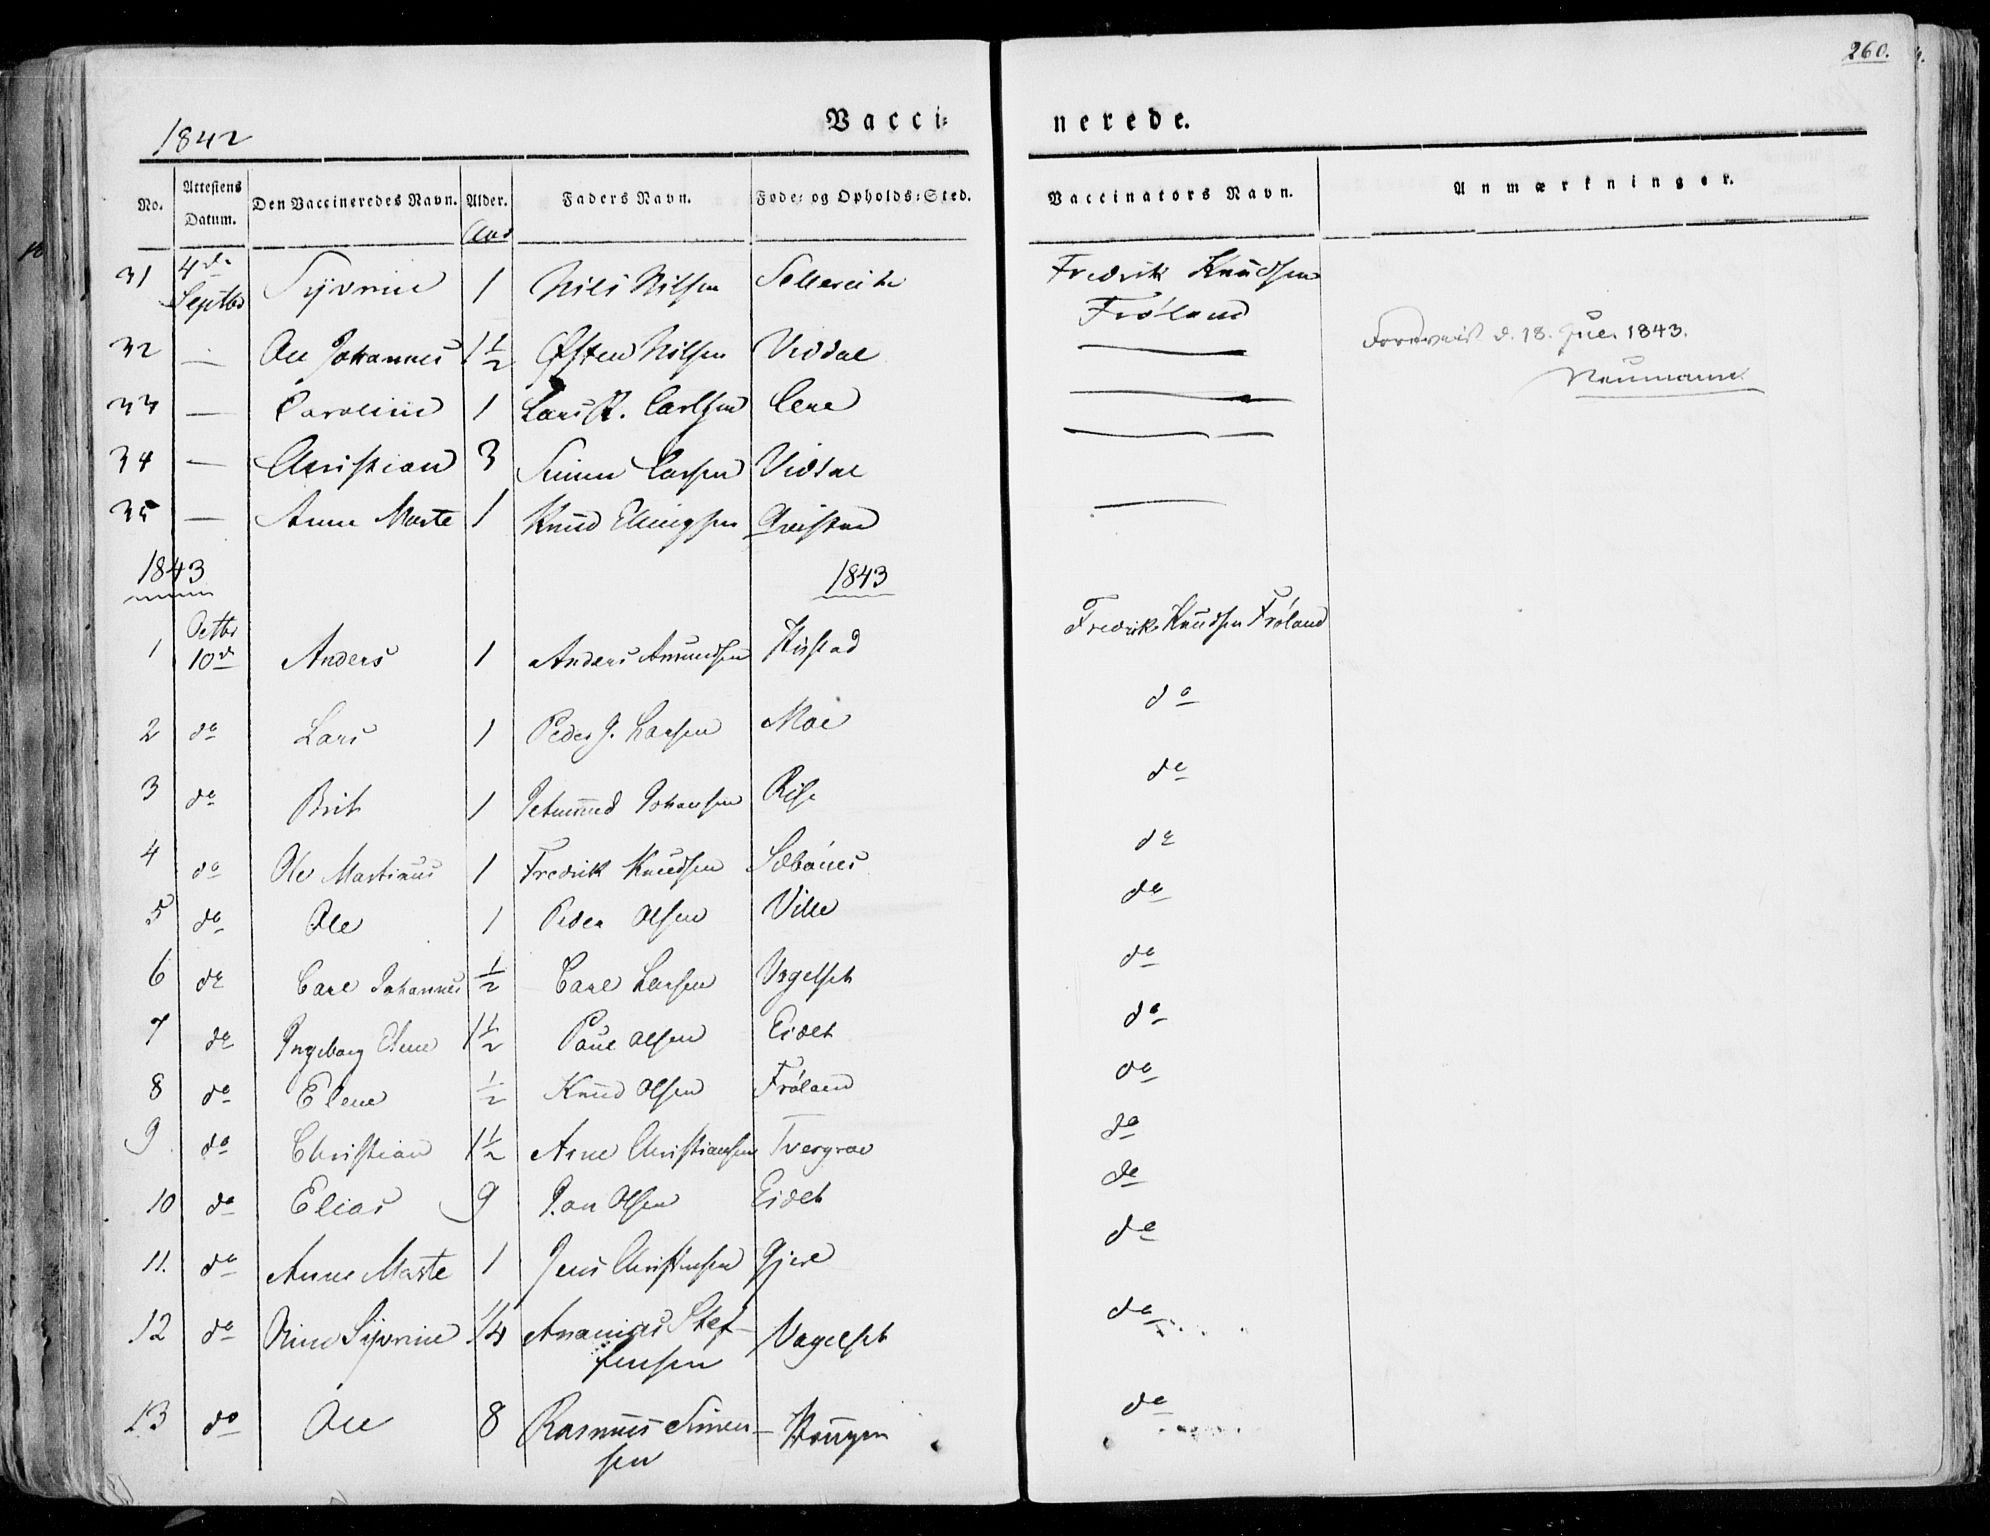 260.
1842
Vacci-
nerede.
No. Attestens Datum. Den Vaccineredes Navn. Alder. Faders Navn. Føde- og Opholds-Sted. Vaccinators Navn. Anmærkninger.
31 4de Septbr Syvrine 1 Nils Nilsen Fredrik Knudsen Frøland
32 — Ole Johannes 1½ Østen Nilsen Vidsal —
Foreviist d. 18. Jul. 1843.
Neumann
33 — Caroline 1 Lars R. Carlsen —
34 — Christian 3 Simen Larsen Vidsal —
35 — Anne Marte 1 Knud Ellingsen Qvistad —
1843 1843
1 Octbr 10de Anders 1 Anders Amundsen Fredrik Knudsen Frøland
2 do Lars 1 Peder J. Larsen Moe do
3 do Brit 1 Johansen Rise do
4 do Ole Martinus 1 Fredrik Knudsen Sæbønes do
5 do Ole 1 Peder Olsen Ville do
6 do Carl Johannes ½ Carl Larsen Vagelset do
7 do Ingeborg 1½ Paul Olsen Eidet do
8 do Elene ½ Knud Olsen Frøland do
9 do Christian 1½ Arne Christiansen Tvergrov do
10 do Elias 9 Jon Olsen Eidet do
11. do Anne Marte 1 Jens Christensen Gjere do
12 do Syvrine 1/4 Ananias Stef-
fensen Vagelset do
13 do Ole 8 Rasmus Simen-
sen Hougen do